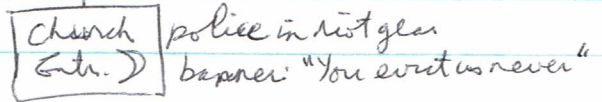 Church police in riot gear
Entr. banner: "You evict us never"